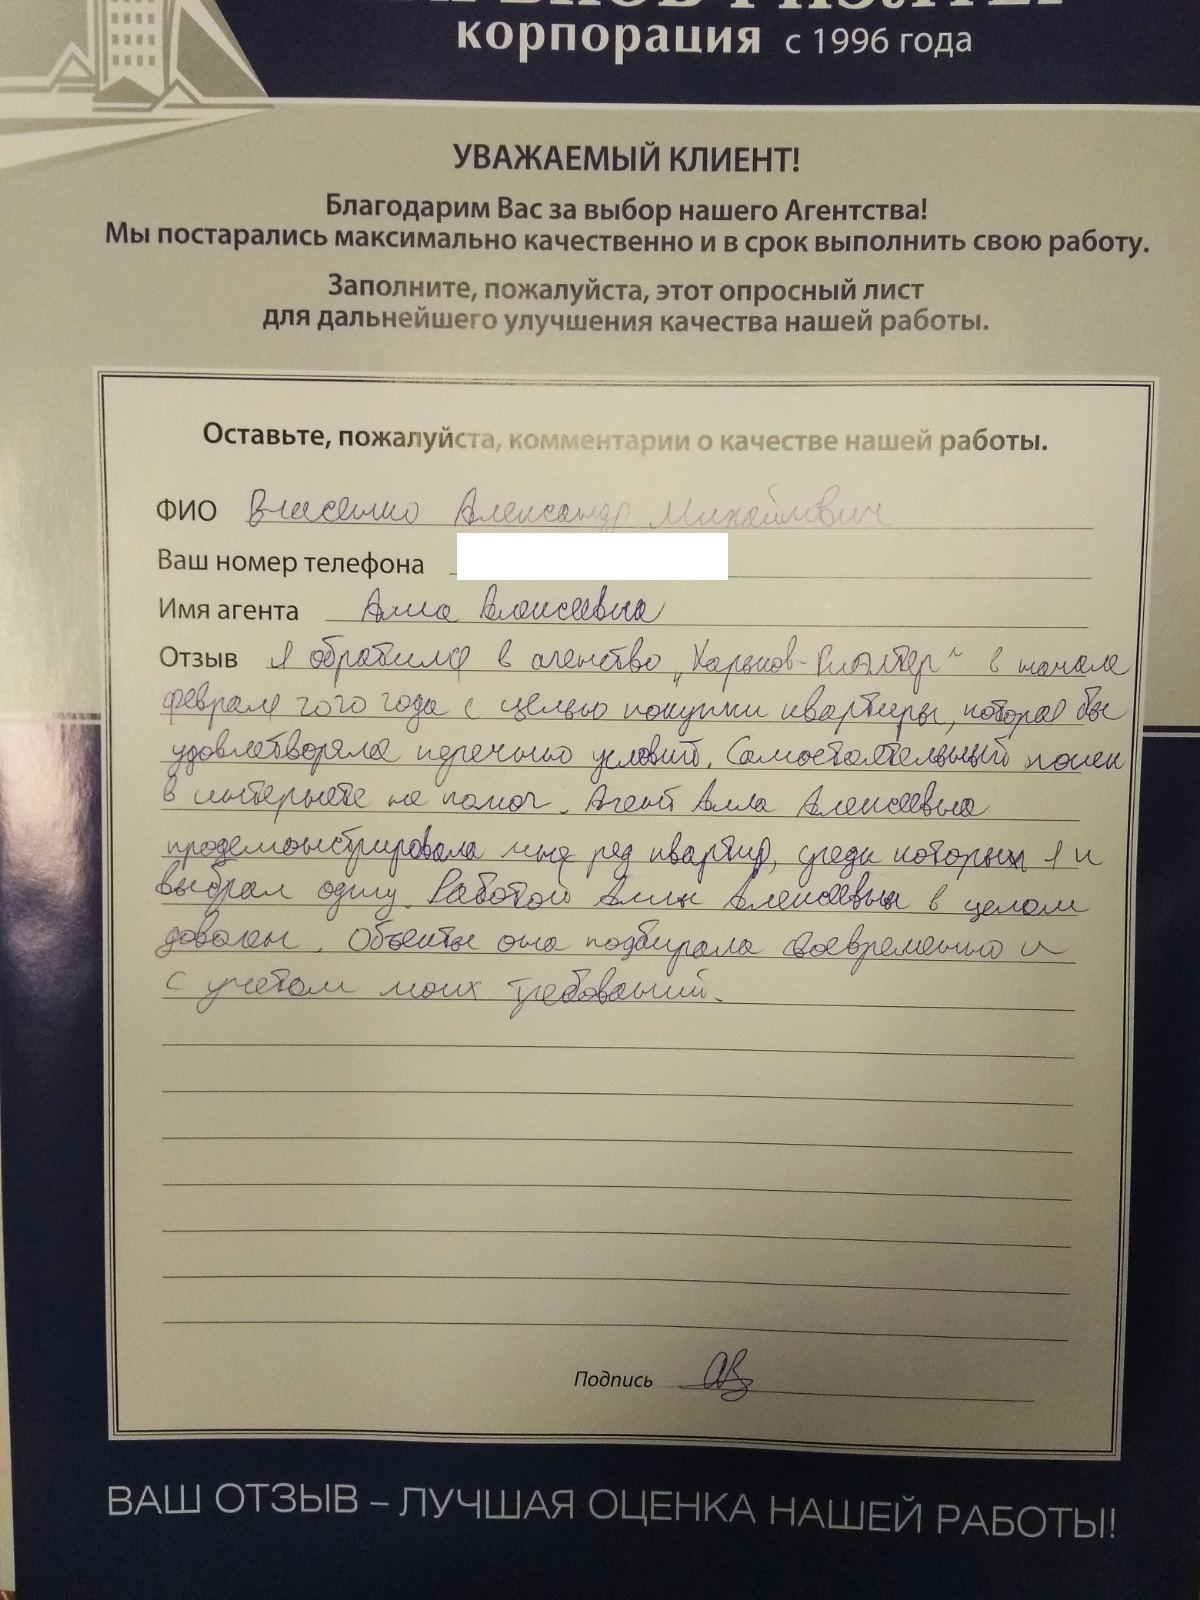 ХАРЬКОВ РИЭЛТЕР
корпорация с 1996 года
УВАЖАЕМЫЙ КЛИЕНТ!
Благодарим Вас за выбор нашего Агентства!
Мы постарались максимально качественно и в срок выполнить свою работу.
Заполните, пожалуйста, этот опросный лист
для дальнейшего улучшения качества нашей работы.
Оставьте, пожалуйста, комментарии о качестве нашей работы.
ФИО Александр Михайлович
Ваш номер телефона
Имя агента Алла Алексеевна
Отзыв Я обратился в агенство „Харьков-Риэлтер“ в начале
февраля того года с целью покупки квартиры, которая бы
удовлетворяла перечню условий. Самостоятельный поиск
в интернете не помог. Агент Алла Алексеевна
продемонстрировала мне ряд квартир, среди которых я и
выбрал одну. Работой Аллы Алексеевны в целом
доволен. Объекты она подбирала своевременно и
с учетом моих требований.
Подпись
ВАШ ОТЗЫВ – ЛУЧШАЯ ОЦЕНКА НАШЕЙ РАБОТЫ!